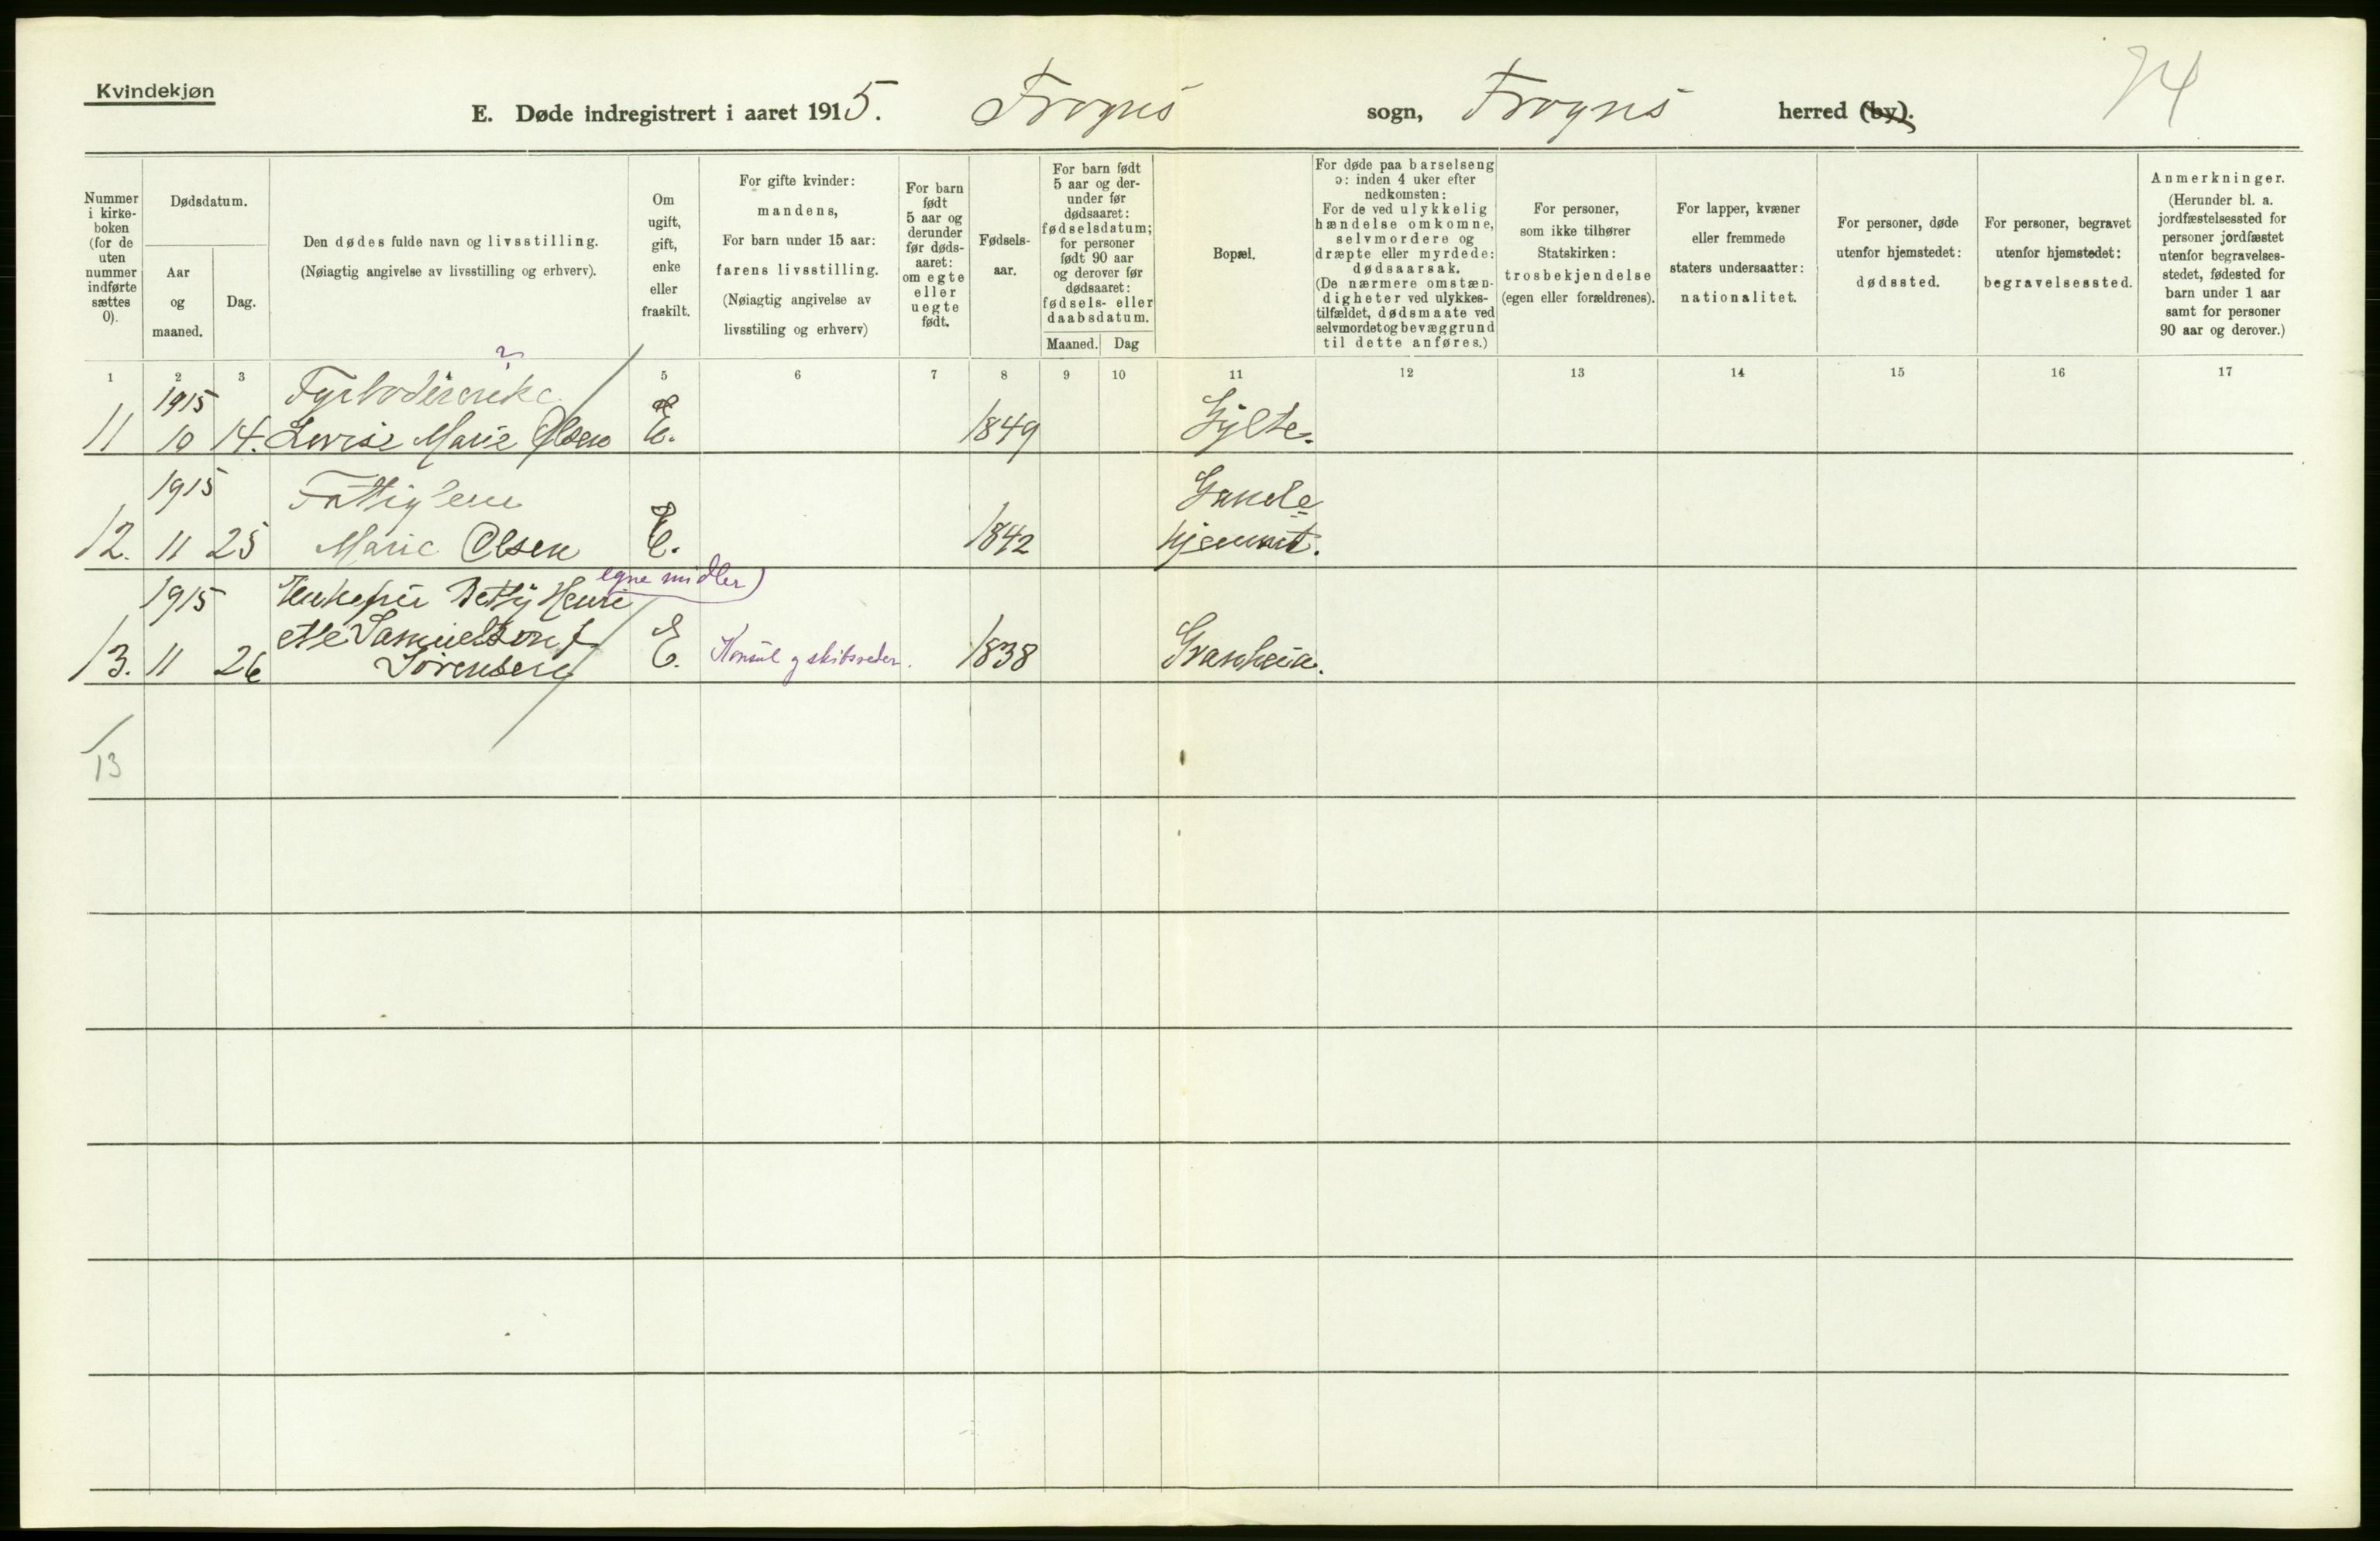 Kvindekjøn
E. Døde indregistrert i aaret 1915. Frogns sogn, Frogns herred (by).
Nummer i kirke-boken (for de uten nummer indførte sættes 0).
Dødsdatum.
Aar og maaned.
Dag.
Den dødes fulde navn og livsstilling.
(Nøiagtig angivelse av livsstilling og erhverv).
Om ugift, gift, enke eller fraskilt.
For gifte kvinder:
mandens,
For barn under 15 aar:
farens livsstilling.
(Nøiagtig angivelse av
livsstiling og erhverv)
For barn født 5 aar og derunder før døds-aaret: om egte eller uegte født.
Fødsels-aar.
For barn født 5 aar og der-under før dødsaaret: fødselsdatum; for personer født 90 aar og derover før dødsaaret: fødsels- eller daabsdatum.
Maaned. Dag
Bopæl.
For døde paa barselseng
ɔ: inden 4 uker efter
nedkomsten:
For de ved ulykkelig
hændelse omkomne,
selvmordere og
dræpte eller myrdede:
dødsaarsak.
(De nærmere omstæn-
digheter ved ulykkes-
tilfældet, dødsmaate ved
selvmordet og bevæggrund
til dette anføres.)
For personer,
som ikke tilhører
Statskirken:
trosbekjendelse
(egen eller forældrenes).
For lapper, kvæner
eller fremmede
staters undersaatter:
nationalitet.
For personer, døde
utenfor hjemstedet:
dødssted.
For personer, begravet
utenfor hjemstedet:
begravelsessted.
Anmerkninger.
(Herunder bl. a.
jordfæstelsessted for
personer jordfæstet
utenfor begravelses-
stedet, fødested for
barn under 1 aar
samt for personer
90 aar og derover.)
1 2 3 4 5 6 7 8 9 10 11 12 13 14 15 16 17
?
1915
11 10 14. Lovise Marie Olsen E. 1849 Gylte.
1915 Fattiglem
12. 11 25 Marie Olsen E. 1842 hjemmet.
egne midler)
1915 Enkefru Betty Henri
ette Samuelsen f.
13. 11 26 Sørensen E. Konsul og skibsreder. 1838 Granheim.
13